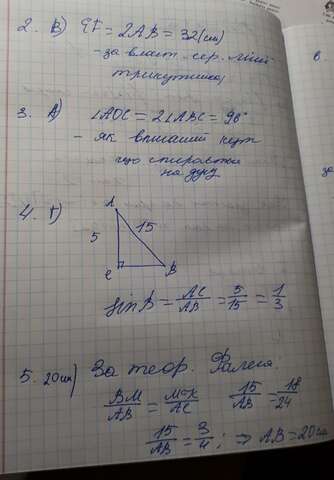 2. В) EF = 2AB = 32 (см)
- за власт. сер. лінії
трикутника
3. А) ∠AOC = 2∠ABC = 96°
- як вписаний кут
що спирається
на дугу
4. Г)
A
5
15
C
B
sin B = AC/AB = 5/15 = 1/3
5. 20см) За теор. Фалеса.
BM/AB = MK/AC 15/AB = 18/24
15/AB = 3/4; ⇒ AB = 20см
в.
за